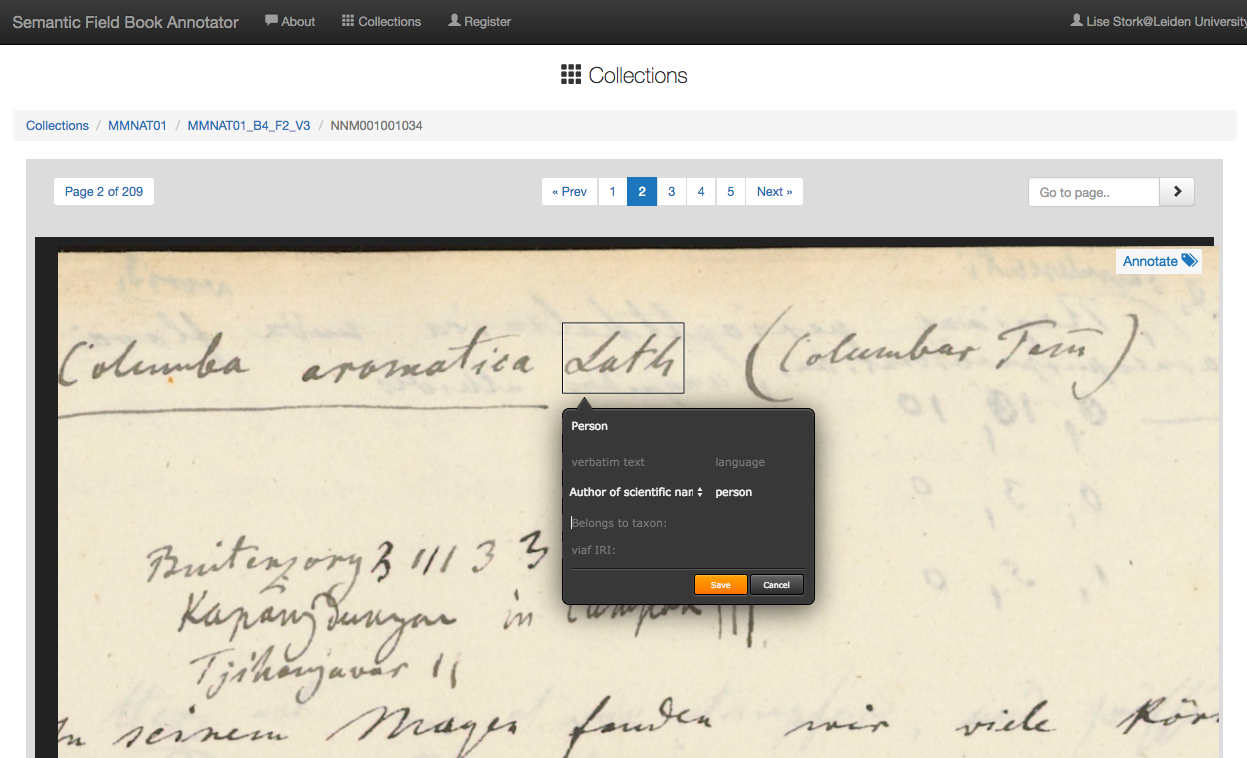 Semantic Field Book Annotator About Collections Register Lise Stork@Leiden University
Collections
Collections / MMNAT01 / MMNAT01_B4_F2_V3 / NNM001001034
Page 2 of 209 « Prev 1 2 3 4 5 Next » Go to page..
Annotate
Columba aromatica Lath (Columbar Tem)
Person
verbatim text language
Author of scientific nar person
Belongs to taxon:
viaf IRI:
Save Cancel
Buitenzorg 3 III 3 3
in
In seinem Magen fanden wir viele Kör